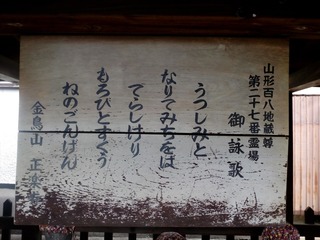 山形百八地蔵尊
第二十七番霊場
御詠歌
うつしみと
なりてみちをば
てらしけり
もろびとすくう
ねのごんげん
金鳥山 正